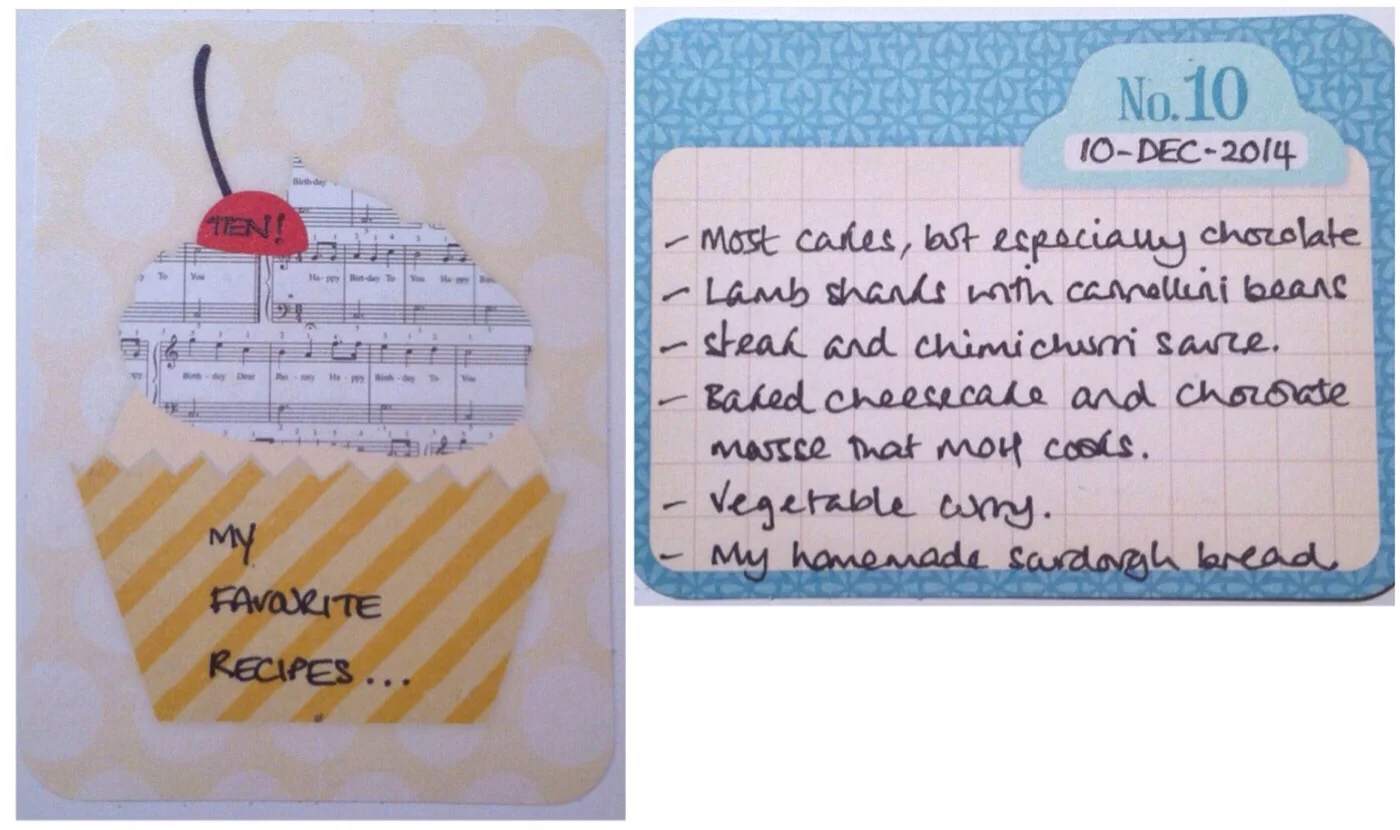 Birthday
TEN!
To You
Ha - ppy Birth - day To You Ha - ppy
Birth - day Dear Ha - ppy Birth - day To You
MY
FAVOURITE
RECIPES...
No.10
10-DEC-2014
- Most cakes, but especially chocolate
- Lamb shanks with cannellini beans
- Steak and chimichurri sauce.
- Baked cheesecake and chocolate
mousse that Moy cooks.
- Vegetable curry.
- My homemade sourdough bread.